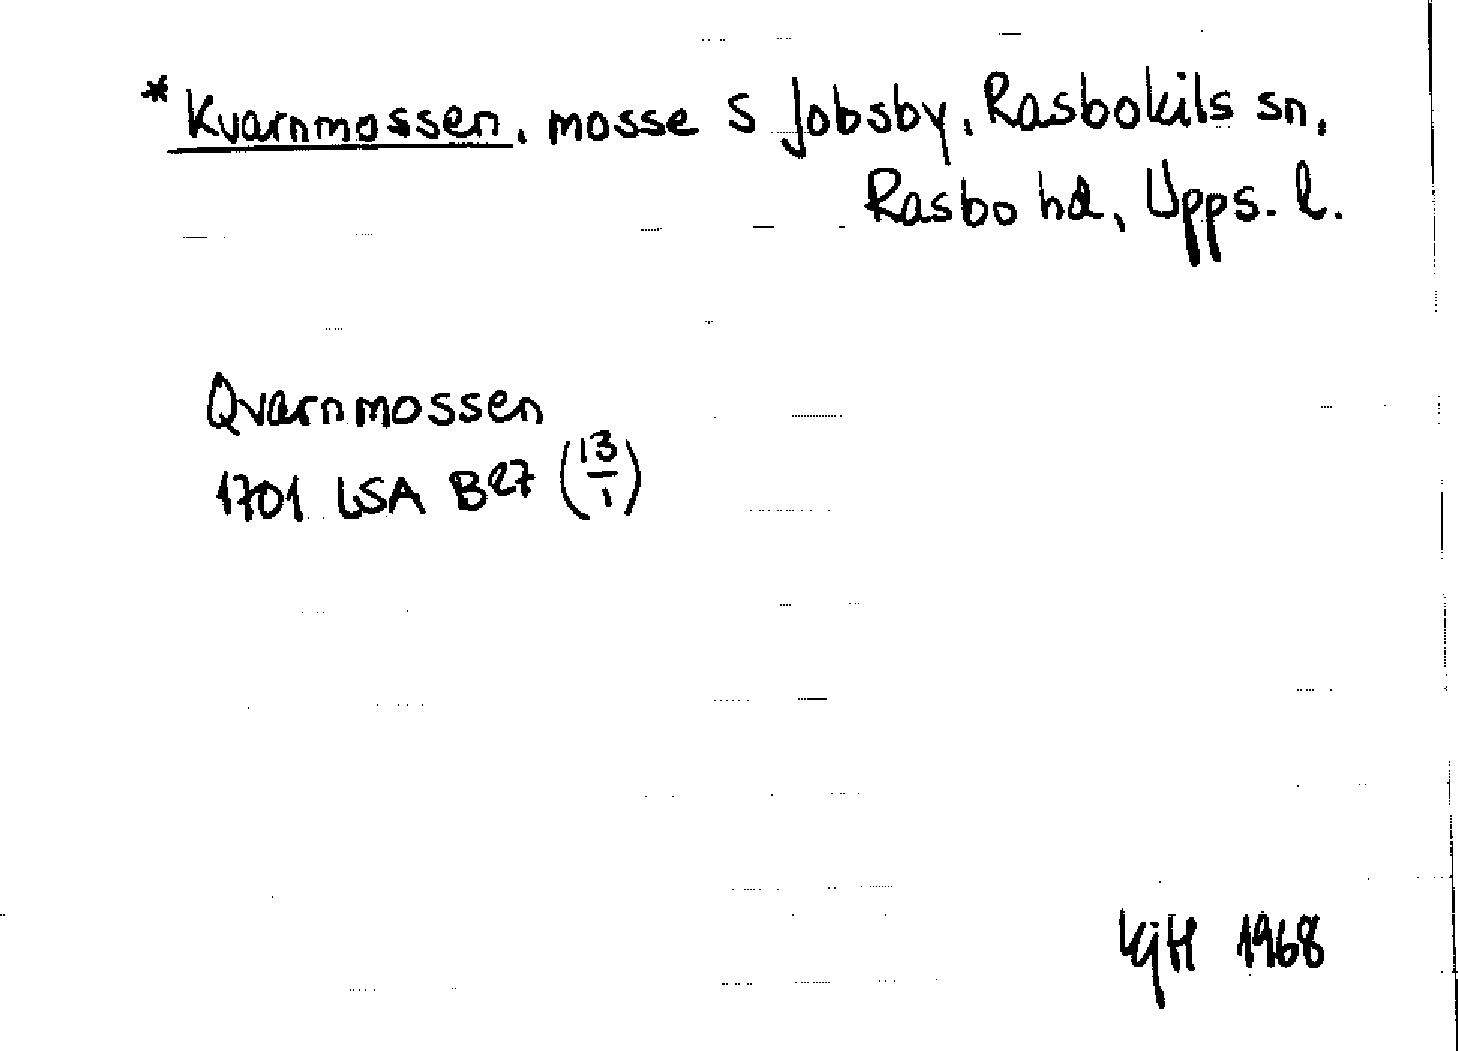 *Kvarnmossen, mosse S Jobsby, Rasbokils sn,
Rasbo hd, Upps. l.
Qvarnmossen
1701 LSA B27 (13/1)
1968